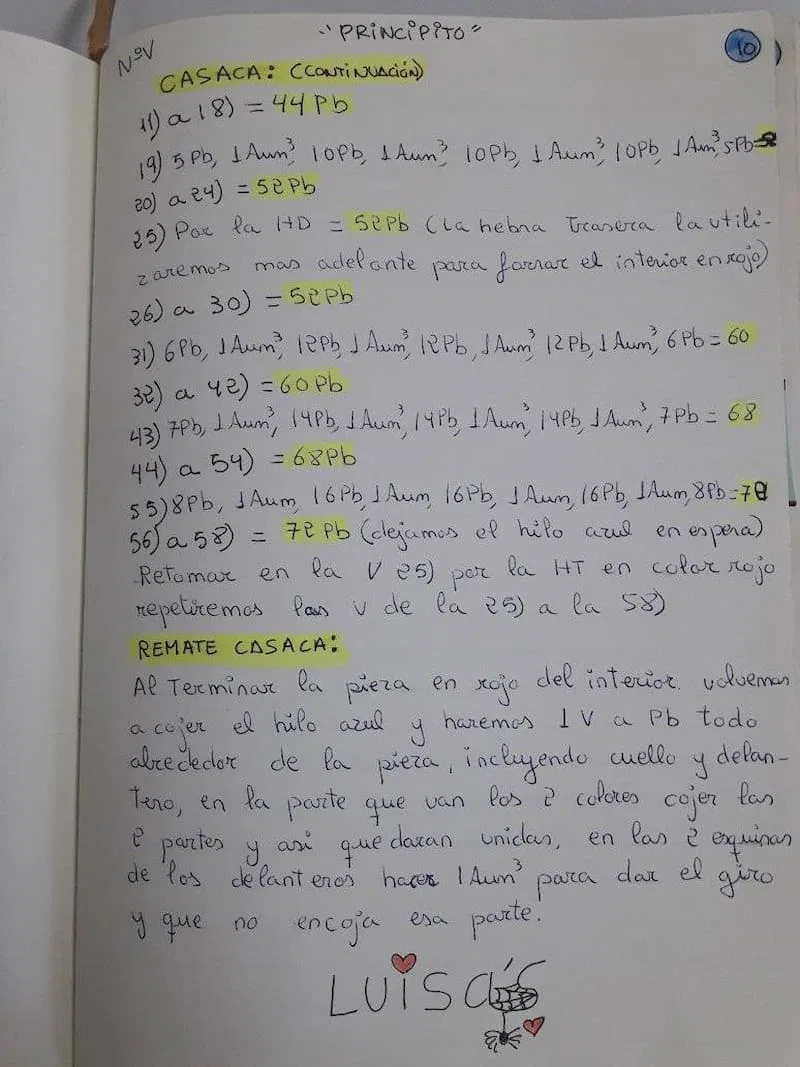 "PRINCIPITO"
10
NºV
CASACA: (CONTINUACIÓN)
11) a 18) = 44 Pb
19) 5 Pb, 1 Aum³, 10 Pb, 1 Aum³, 10 Pb, 1 Aum³, 10 Pb, 1 Aum³, 5 Pb =
20) a 24) = 52 Pb
25) Por la HD = 52 Pb (La hebra Trasera la utili-
zaremos mas adelante para forrar el interior en rojo)
26) a 30) = 52 Pb
31) 6 Pb, 1 Aum³, 12 Pb, 1 Aum³, 12 Pb, 1 Aum³, 12 Pb, 1 Aum³, 6 Pb = 60
32) a 42) = 60 Pb
43) 7 Pb, 1 Aum³, 14 Pb, 1 Aum³, 14 Pb, 1 Aum³, 14 Pb, 1 Aum³, 7 Pb = 68
44) a 54) = 68 Pb
55) 8 Pb, 1 Aum, 16 Pb, 1 Aum, 16 Pb, 1 Aum, 16 Pb, 1 Aum, 8 Pb =
56) a 58) = 72 Pb (dejamos el hilo azul en espera)
Retomar en la V 25) por la HT en color rojo
repetiremos las V de la 25) a la 58)
REMATE CASACA:
Al Terminar la pieza en rojo del interior. volvemos
a cojer el hilo azul y haremos 1 V a Pb todo
alrededor de la pieza, incluyendo cuello y delan-
Tero, en la parte que van los 2 colores cojer las
2 partes y asi quedaran unidas, en las 2 esquinas
de los delanteros hacer 1 Aum³ para dar el giro
y que no encoja esa parte.
LUISA'S